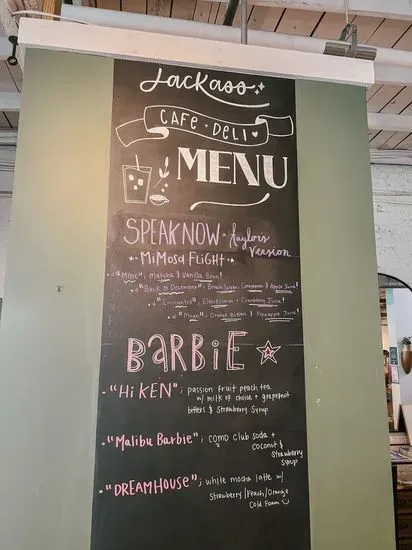 Jackass
CAFE • DELI
MENU
SPEAK NOW • Taylor's
Version
• MiMOSA FLiGHT •
• "Mine"; Matcha & Vanilla Bean!
• "Back to December"; Brown Sugar, Cinnamon & Apple Juice!
• "Enchanted"; Elderflower + Cranberry Juice!
• "Mean"; Orange Bitters & Pineapple Juice!
BARBiE
• "Hi KEN"; passion fruit peach tea
w/ milk of choice + grapefruit
bitters & Strawberry Syrup
• "Malibu Barbie"; CO2MO club soda +
coconut &
Strawberry
Syrup
• "DREAMHOUSE"; white mocha latte w/
Strawberry/Peach/Orange
Cold Foam